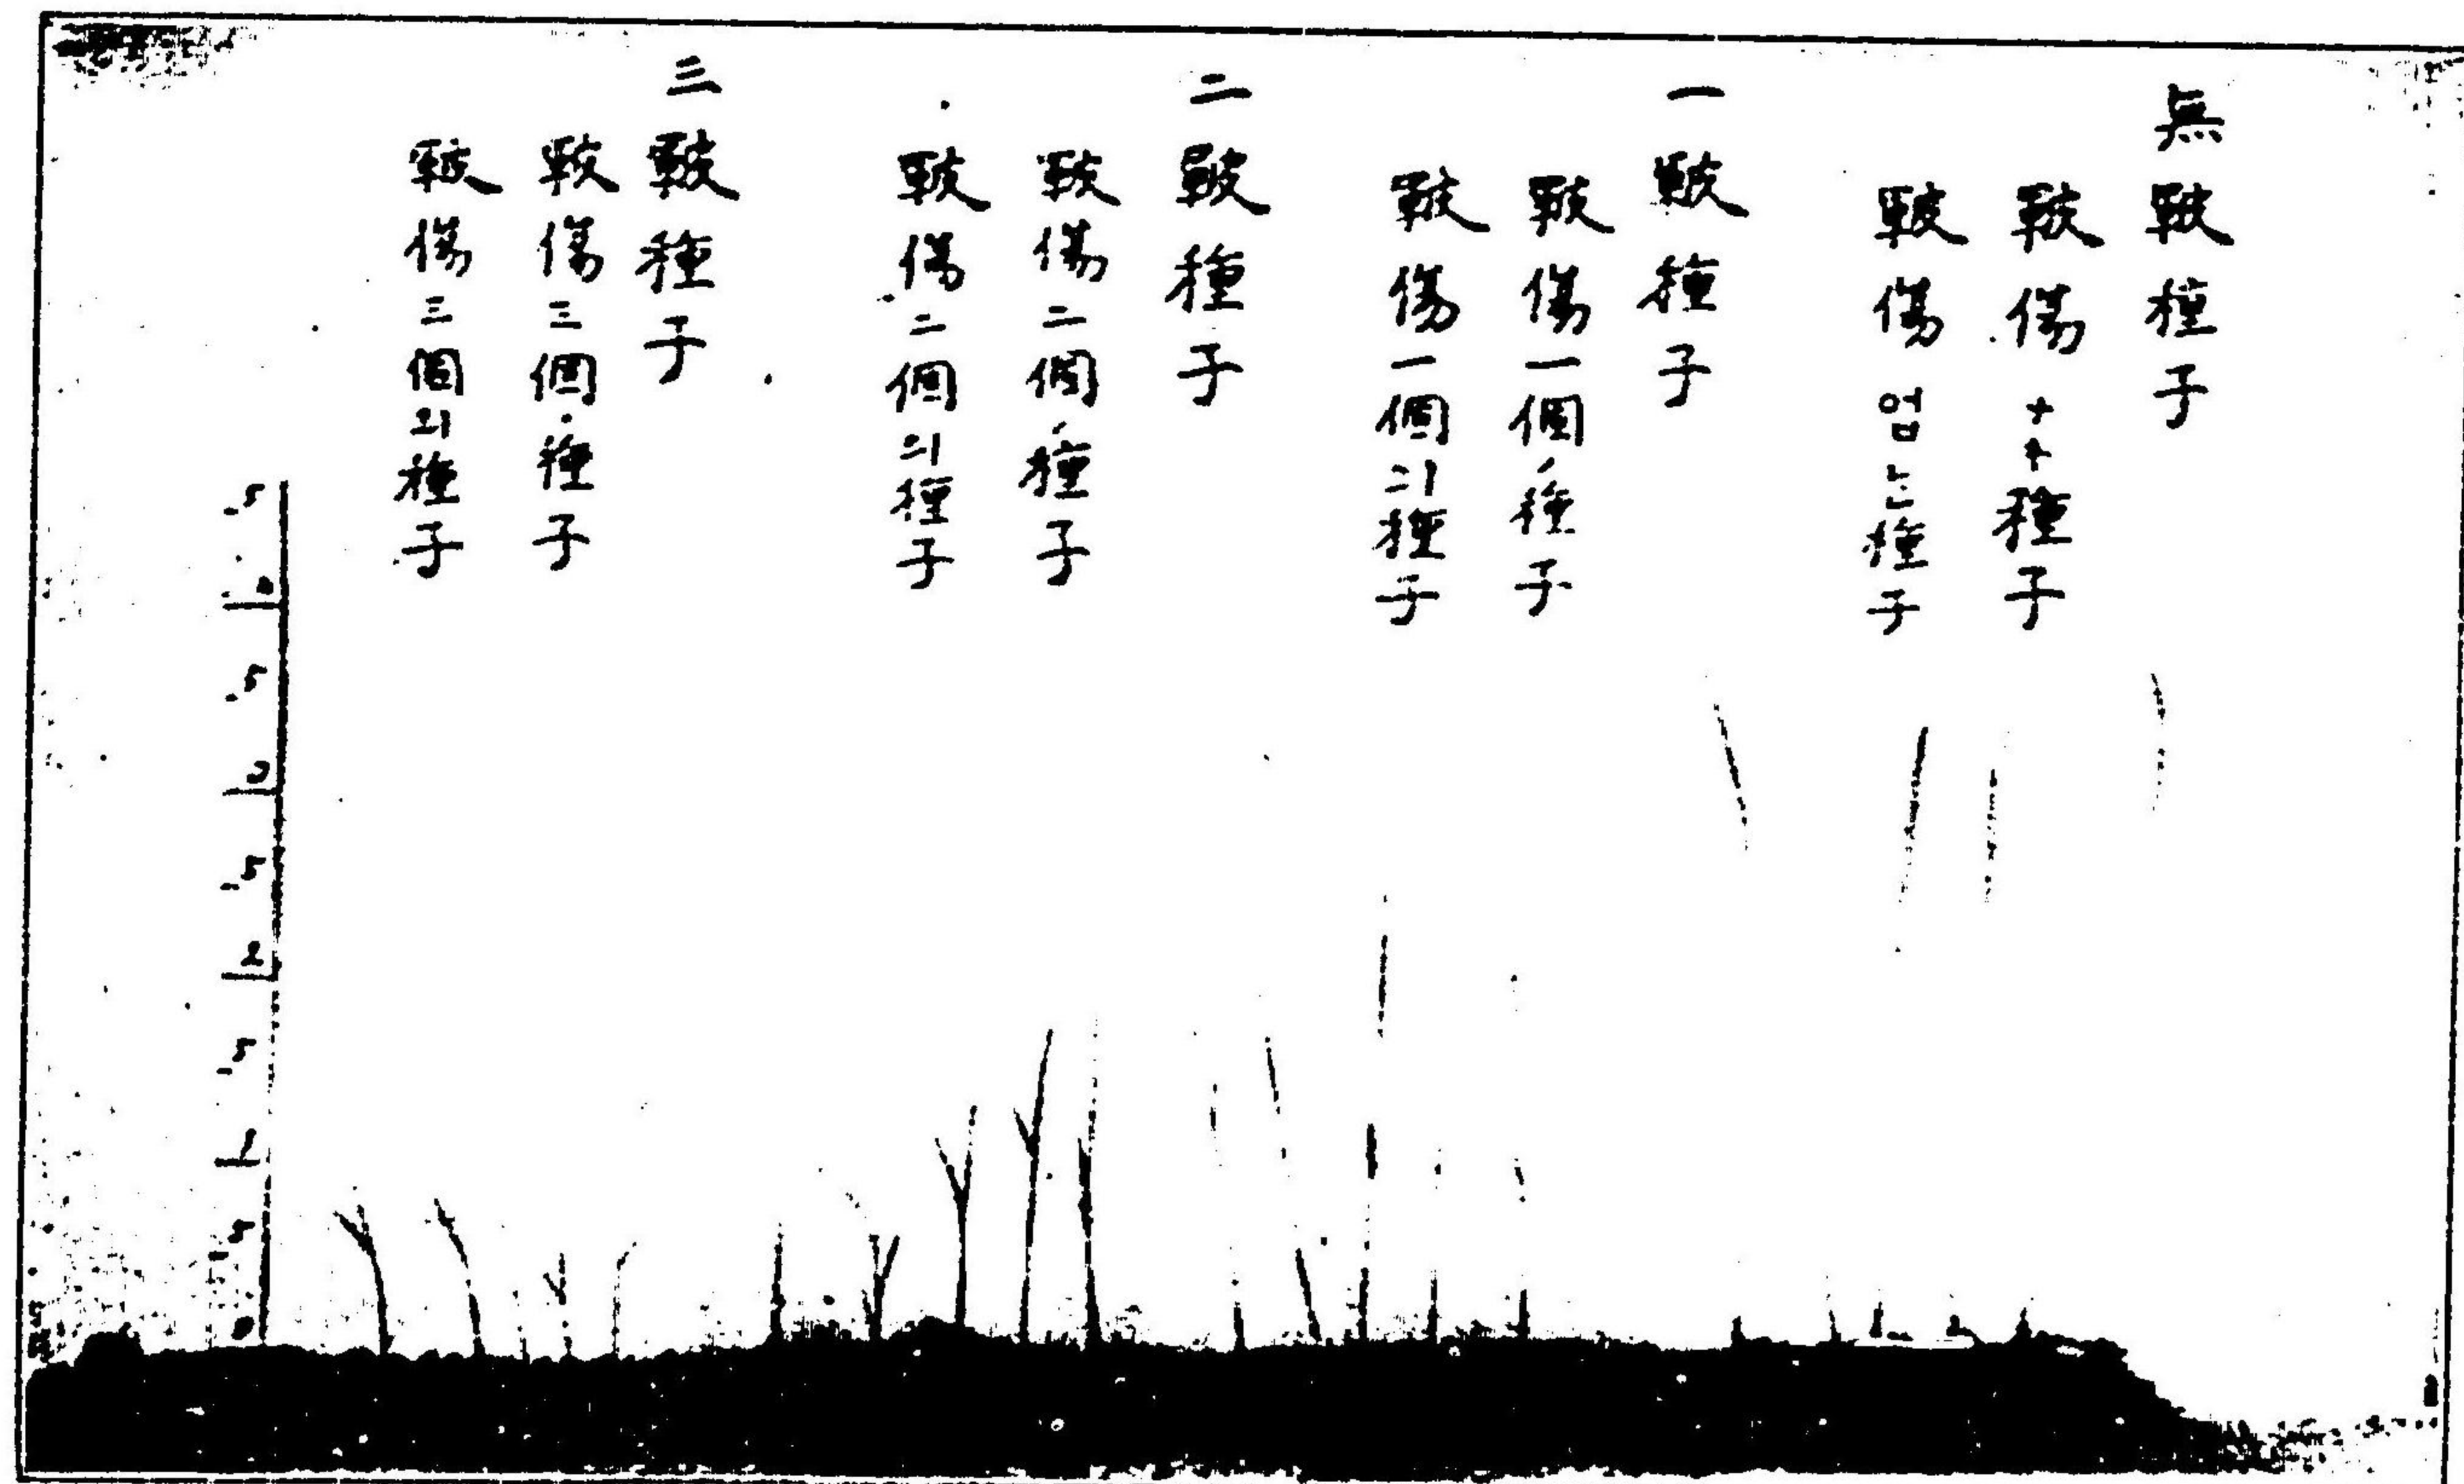 無皸種子
皸傷ナキ種子
皸傷업는種子
一皸種子
皸傷一個ノ種子
皸傷一個의種子
二皸種子
皸傷二個ノ種子
皸傷二個의種子
三皸種子
皸傷三個ノ種子
皸傷三個의種子
.5
.5
.5
2
.5
1
.5
0